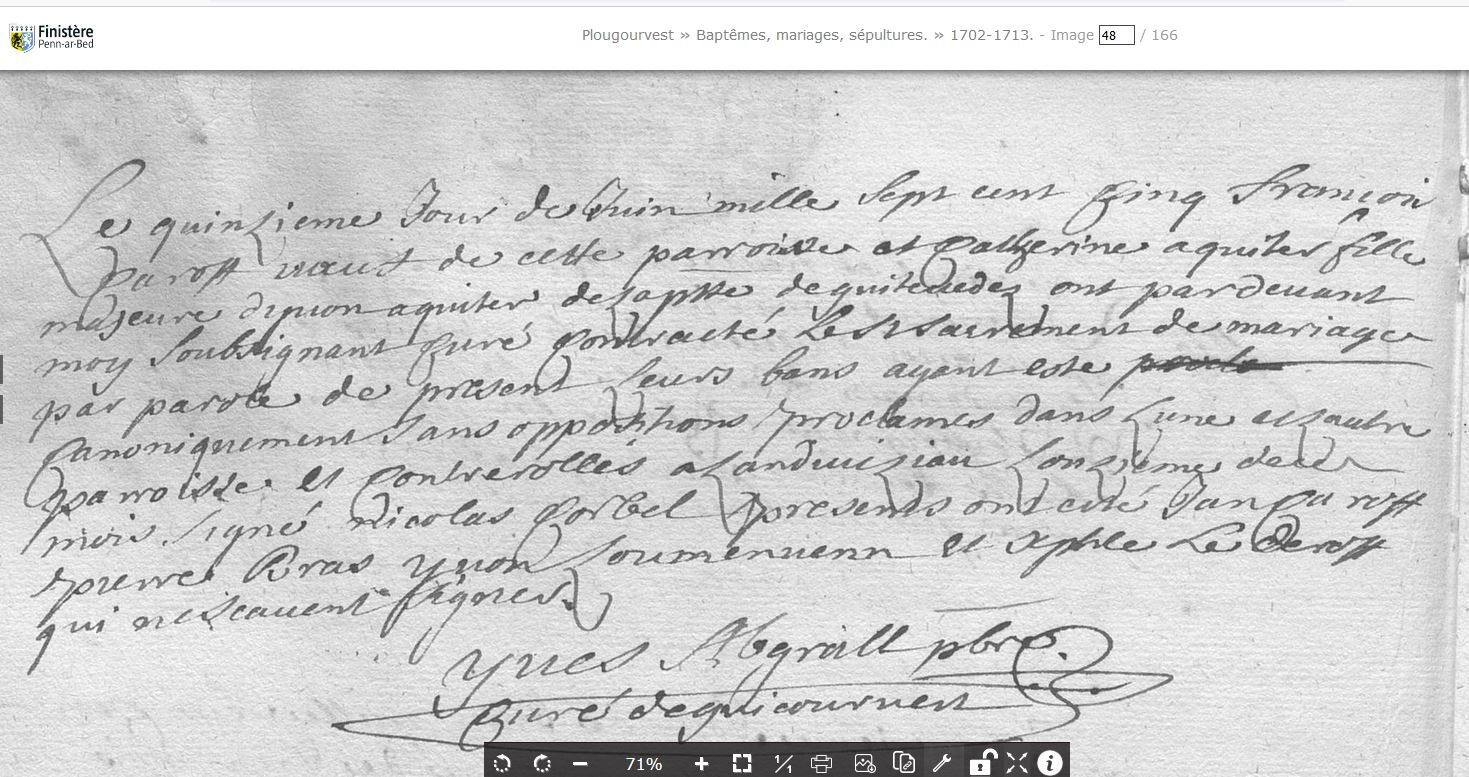 Finistère
Penn-ar-Bed
Plougourvest » Baptêmes, mariages, sépultures. » 1702-1713. - Image 48 / 166
Le quinzieme Jour de Juin mille sept cent Cinq francois
Caroff de cette parroisse et Catherine aquiter fille
majeure dyuon aquiter de ont pardeuant
moy soubsignant Curé Contracté Le st sacrement de mariage
par parole de present leurs bans ayant este
Canoniquement sans oppositions proclames dans Lune et Lautre
parroisse et Controllés a Landiuisiau Lonzieme de ce
mois signé Nicolas Corbel presents ont esté Jan Caroff
pierre Bras yuon et Le
qui ne scauent signer.
yues Abgrall pbre.
Curé deguicouruest
71%
1/1